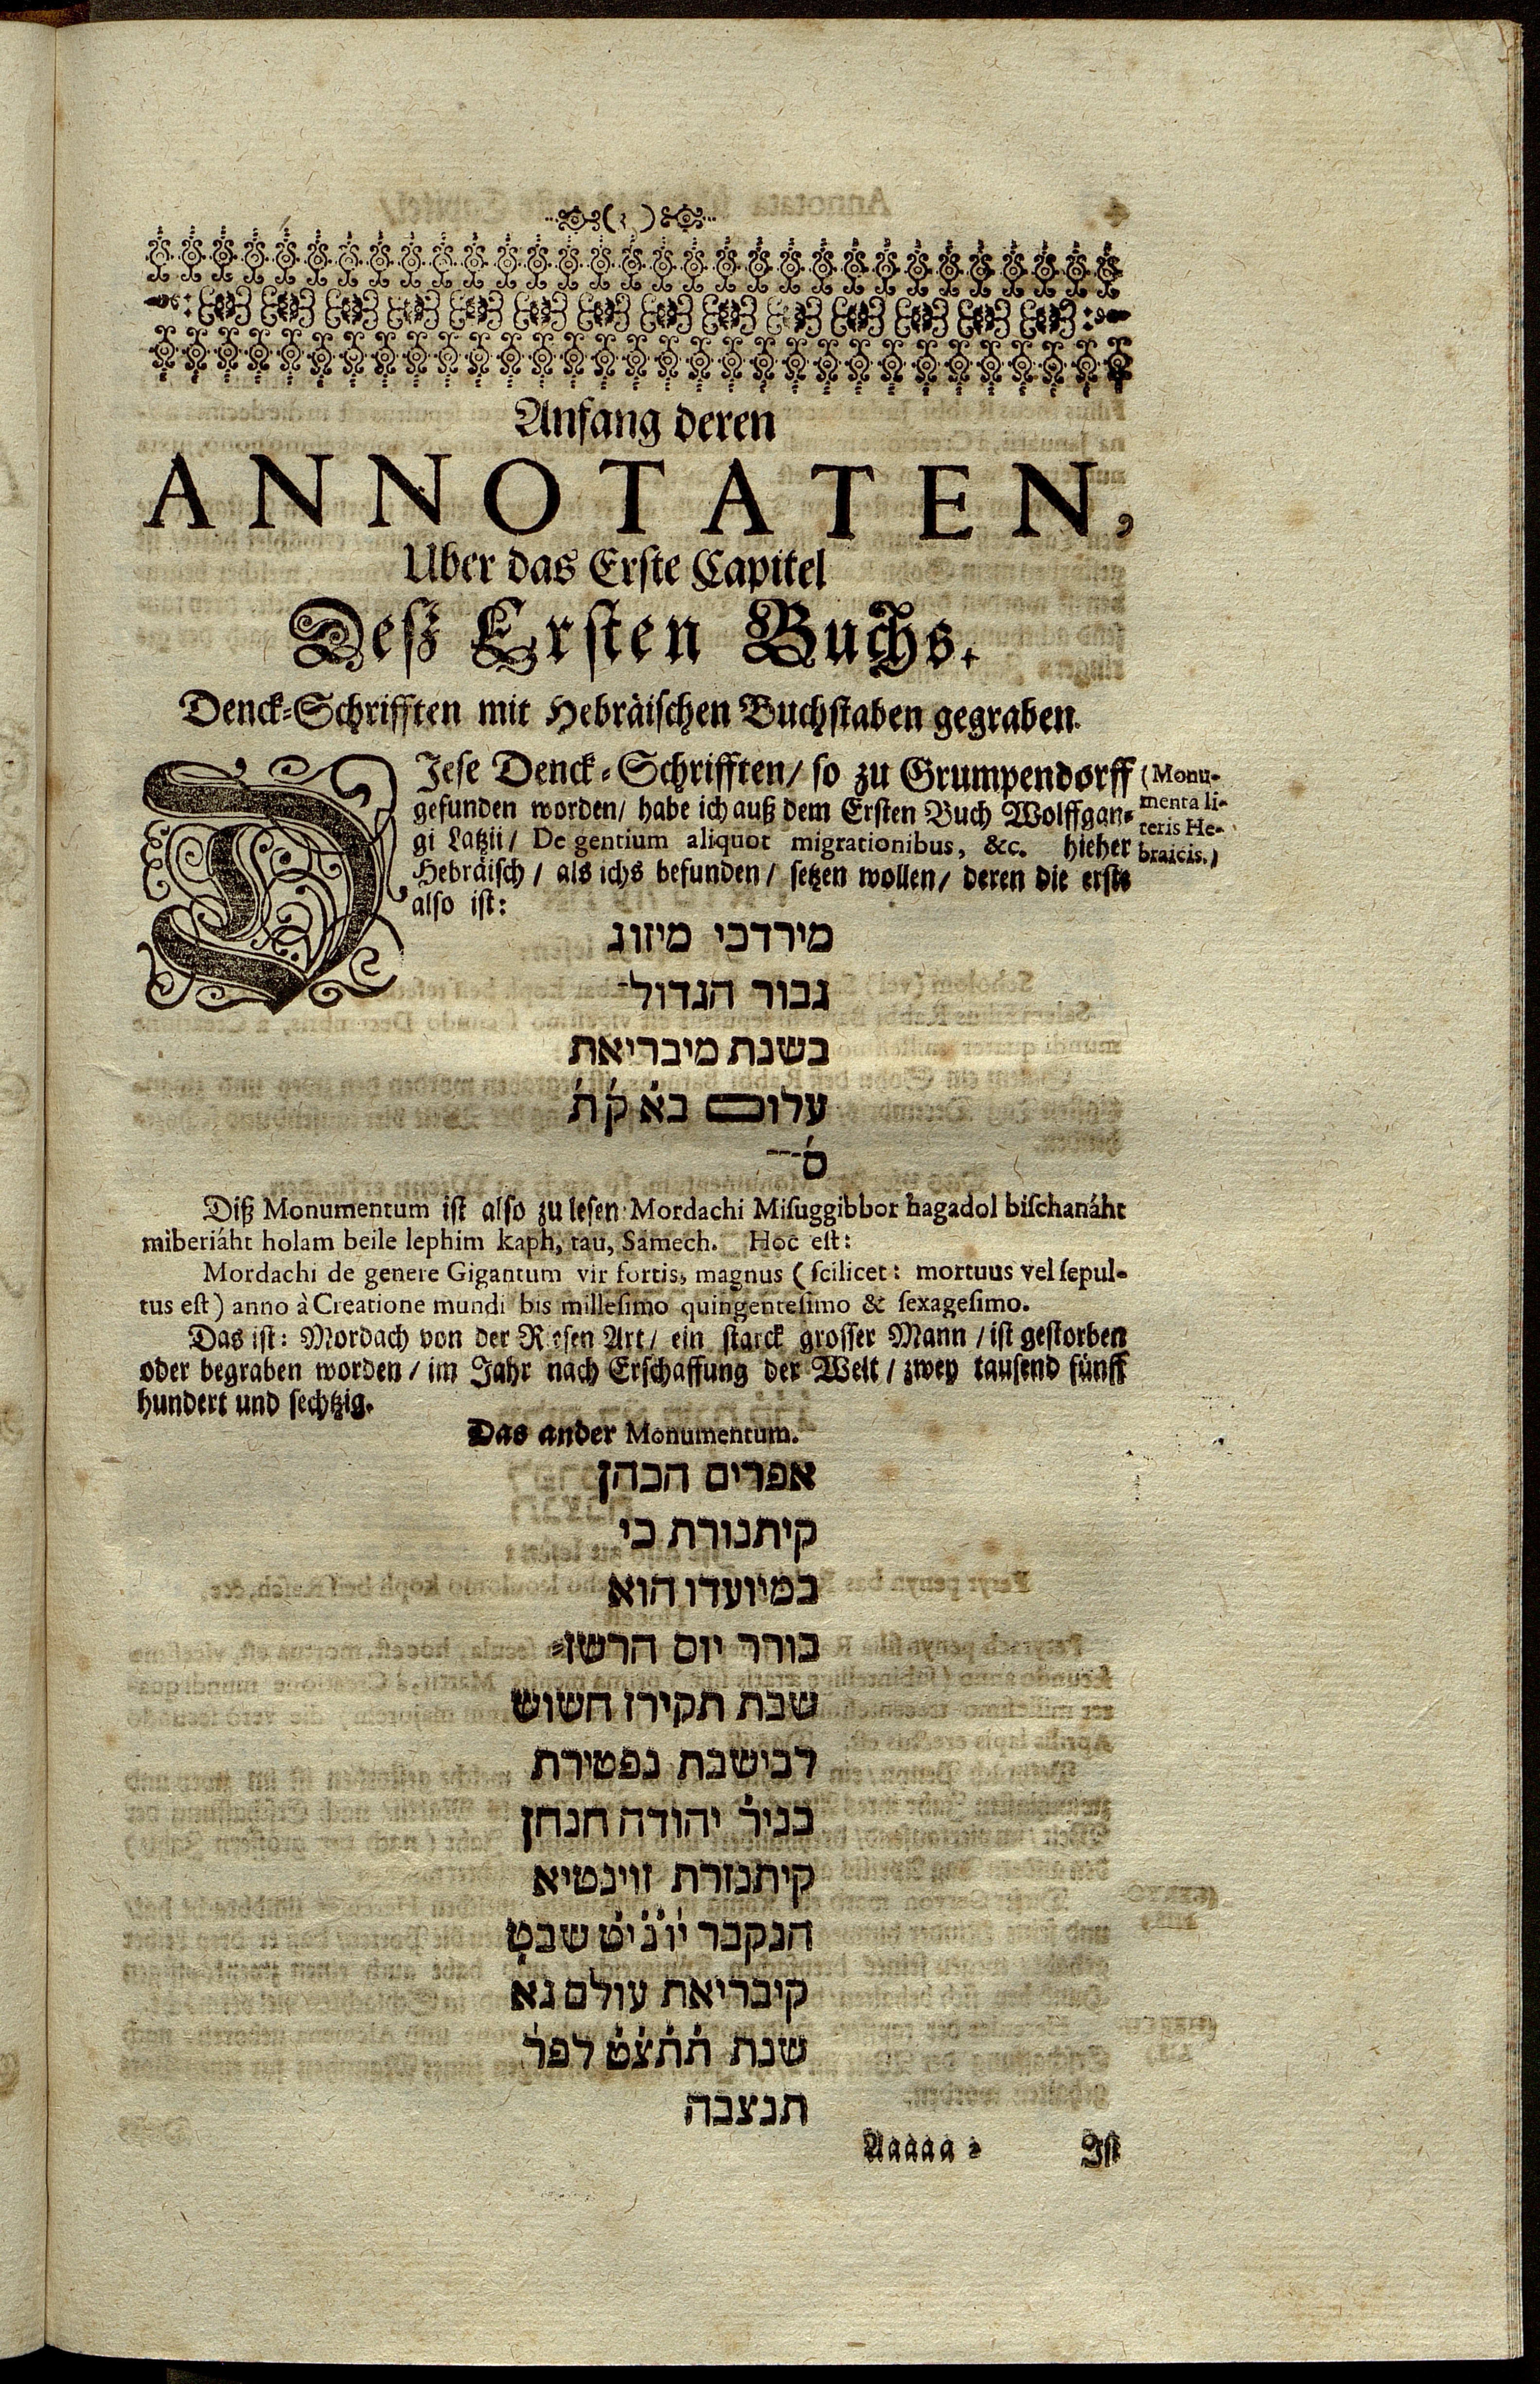 Anfang deren
ANNOTATEN,
Uber das Erste Capitel
Deß Ersten Buchs.
Denck-Schrifften mit Hebräischen Buchstaben gegraben.
DIese Denck-Schrifften/ so zu Grumpendorff
gefunden worden/ habe ich auß dem Ersten Buch Wolffgan-
gi Latzii/ De gentium aliquot migrationibus, &c. hieher
Hebräisch/ als ichs befunden/ setzen wollen/ deren die erste
also ist:
(Monu-
menta li-
teris He-
braicis.)
מירדכי מיזוג
גבור הגדול
בשנת מיבריאת
עלום בא̇ ק̇ת̇
ס̇
Diß Monumentum ist also zu lesen Mordachi Misuggibbor hagadol bischanáht
miberiáht holam beile lephim kaph, tau, Samech. Hoc est:
Mordachi de genere Gigantum vir fortis, magnus (scilicet: mortuus vel sepul-
tus est) anno à Creatione mundi bis millesimo quingentesimo & sexagesimo.
Das ist: Mordach von der Riesen Art/ ein starck grosser Mann/ ist gestorben
oder begraben worden/ im Jahr nach Erschaffung der Welt/ zwey tausend fünff
hundert und sechtzig.
Das ander Monumentum.
אפרים הכהן
קיתנורת כי
במיועדו הוא
בורר יום הרשו
שבת תקירז חשוש
לבישבת נפטירת
בניר̇ יהודה חנחן
קיתנזרת זוינטיא
הנקבר י̇ונ̇י̇ט שבט
קיבריאת עולם גא
שנת ת̇ת̇צ̇ט̇ לפר̇
תנצבה
Aaaaa 2
Ist